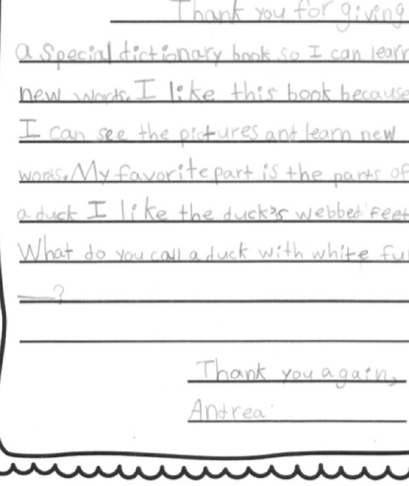 Thank you for giving
a special dictionary book so I can learn
new words. I like this book because
I can see the pictures ant learn new
words. My favorite part is the parts of
a duck I like the duck's webbed feet
What do you call a duck with white fu
?
Thank you again,
Andrea